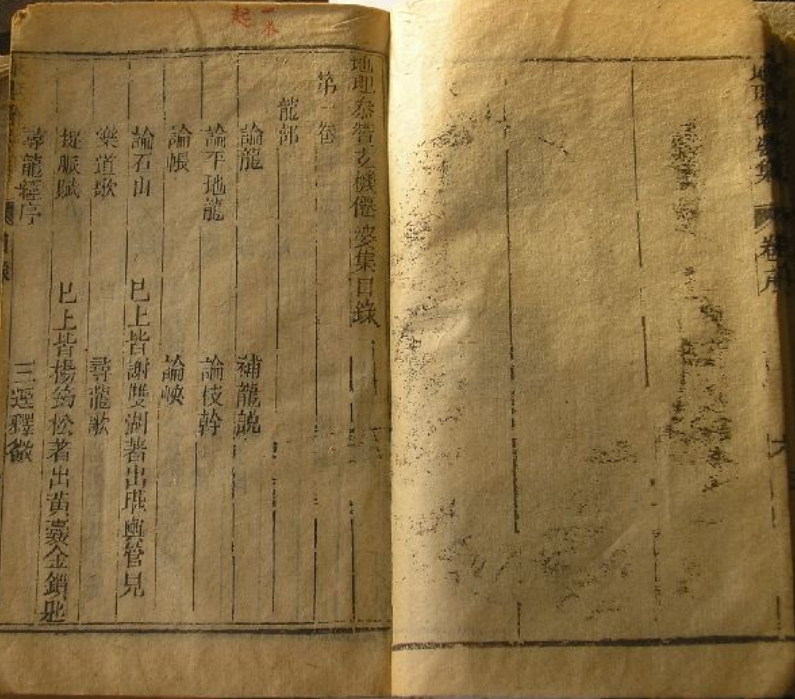 卷序
六
一本
起
地理參贊玄機僊婆集目錄
第一卷
龍部
論龍 補龍說
論平地龍 論枝幹
論帳 論峽
論石山 已上皆謝雙湖著出堪輿管見
樂道歌 尋龍歌
捉脈賦 已上皆楊筠松著出黃囊金鎖匙
尋龍經序 三逕釋微